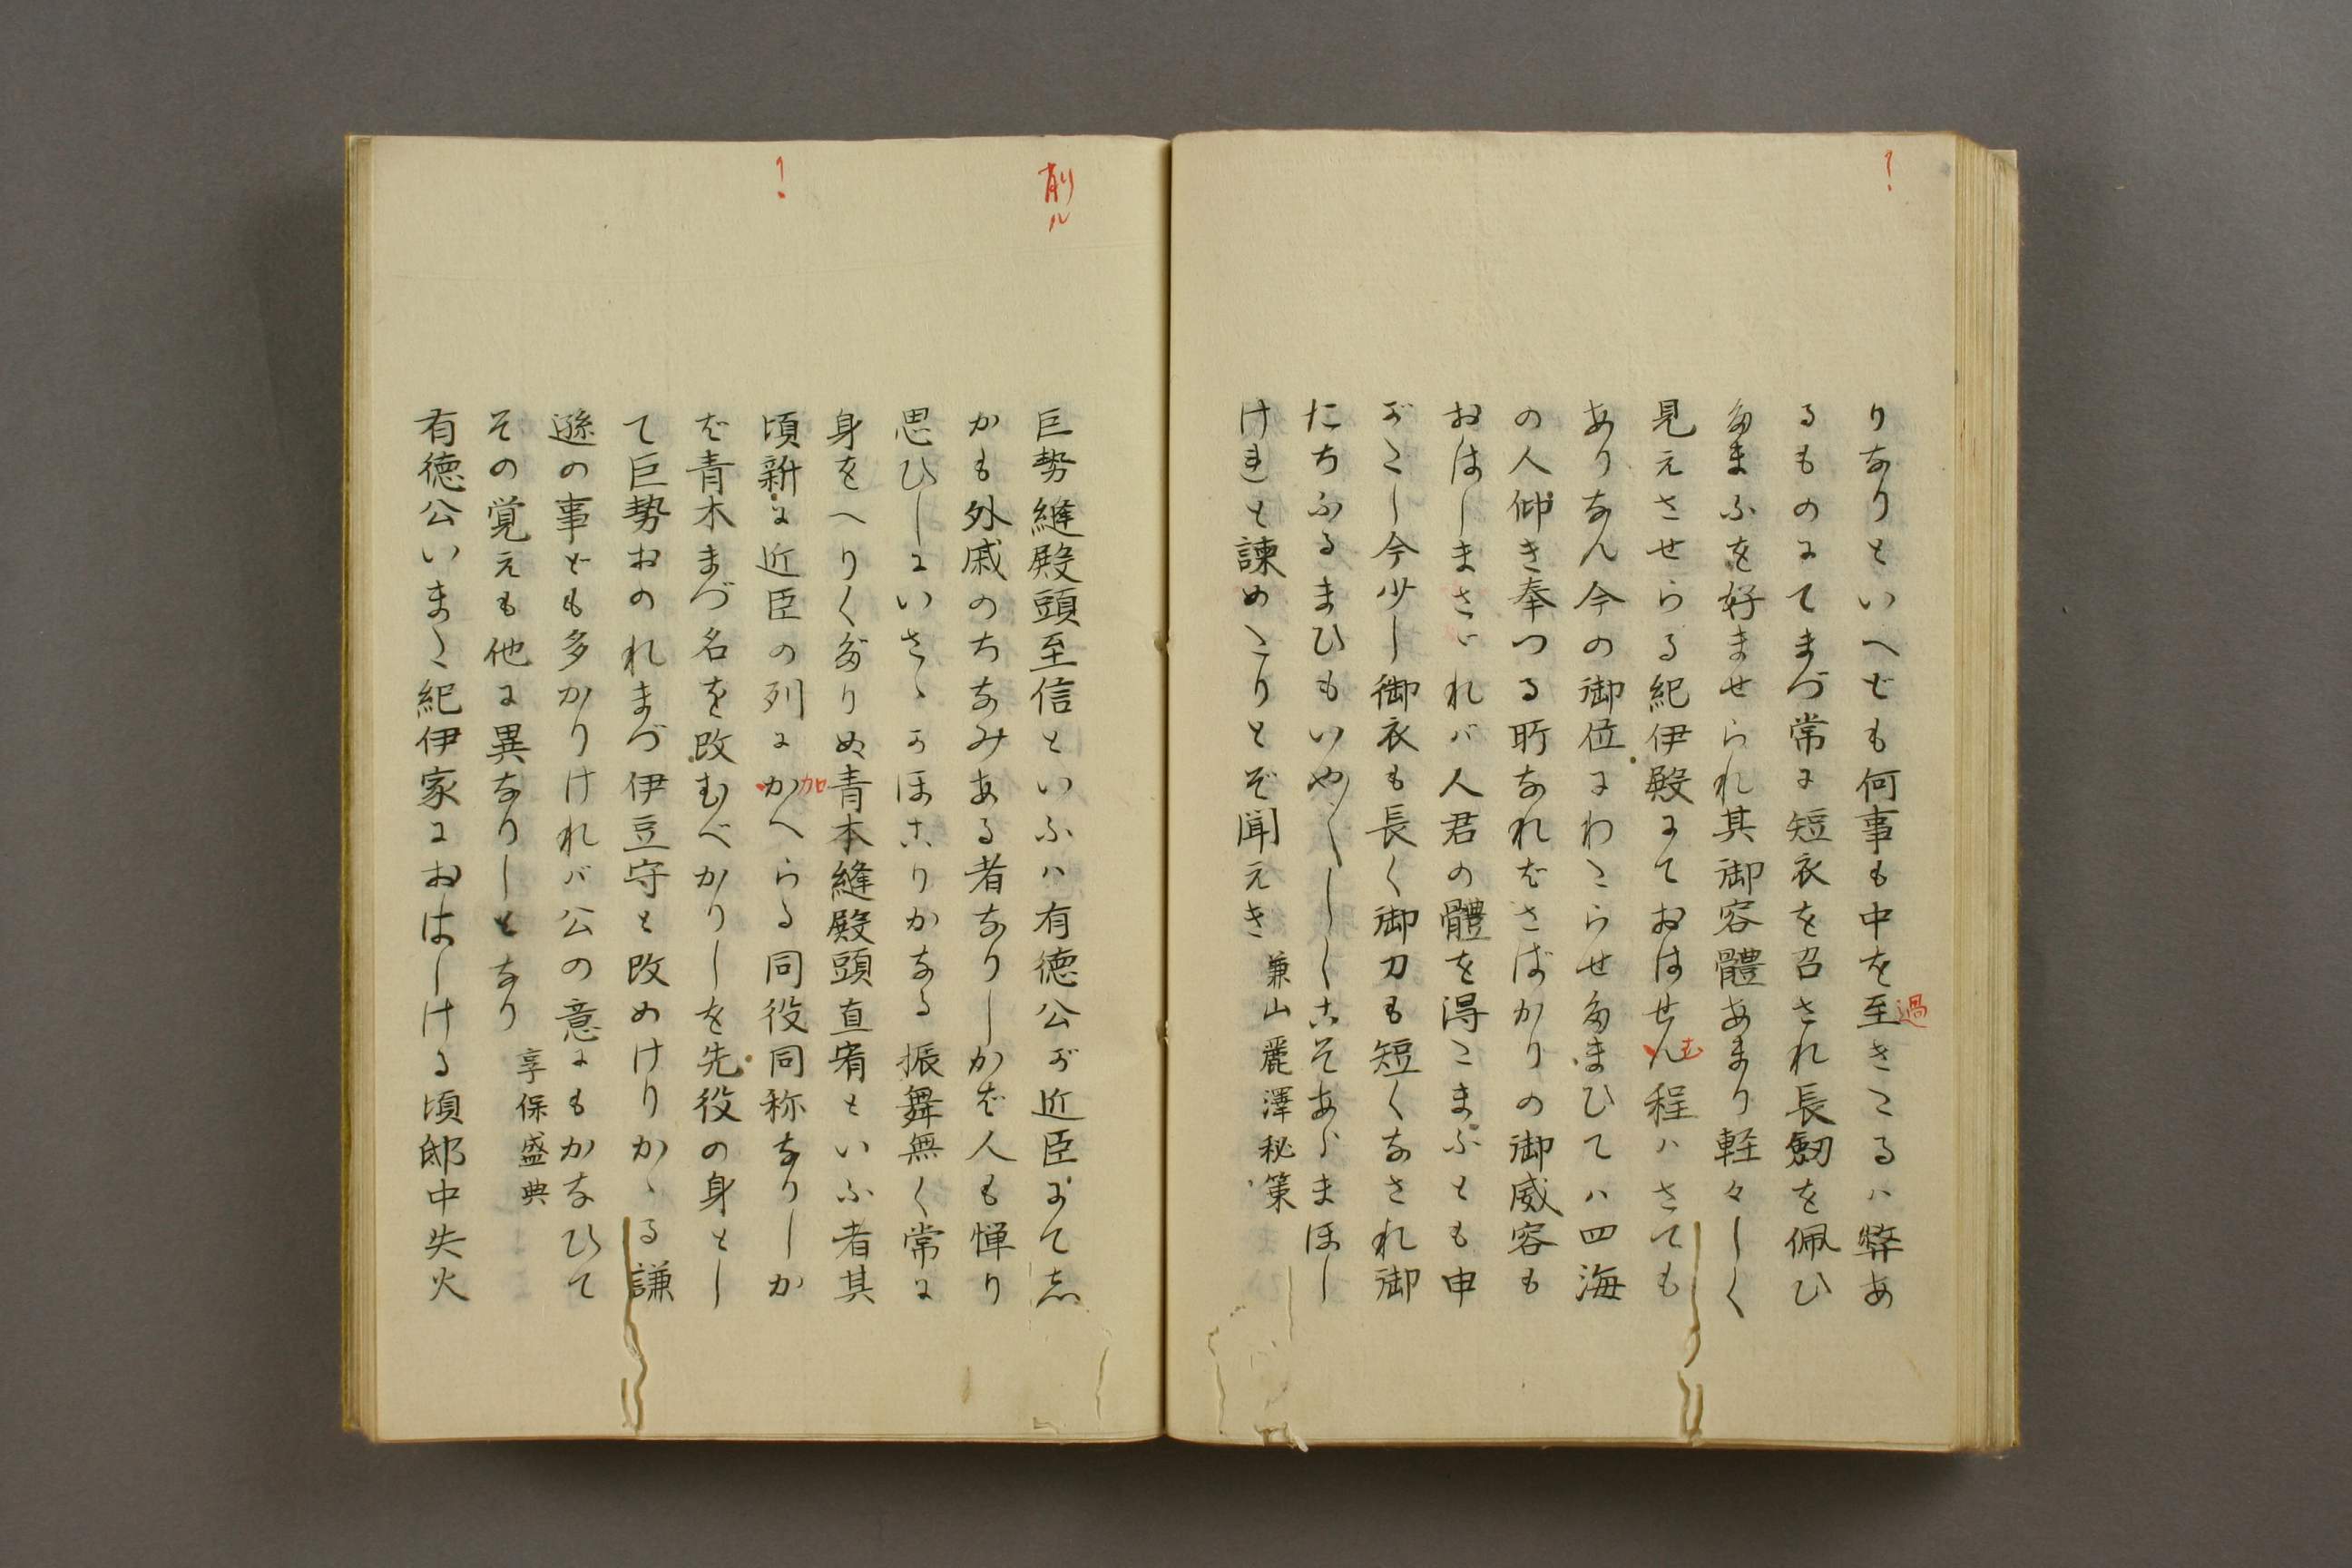 りなりといへども何事も中を至過きたるハ弊あ
るものにてまづ常に短衣を召され長劔を佩ひ
たまふを好ませられ其御容體あまり軽々しく
見えさせらる紀伊殿にておはせんむ程ハさても
ありなん今の御位にわたらせたまひてハ四海
の人仰き奉つる所なれバさばかりの御威容も
おはしまさゞれバ人君の體を得たまふとも申
がたし今少し御衣も長く御刀も短くなされ御
たちふるまひもいや〱しくこそあらまほし
けれと諫めたりとぞ聞えき 兼山麗澤秘策
削ル
巨勢縫殿頭至信といふハ有徳公が近臣にてし
かも外戚のちなみある者なりしかバ人も憚り
思ひしにいさゝかほこりかなる振舞無く常に
身をへりくだりぬ青木縫殿頭直宥といふ者其
頃新に近臣の列にか加へらる同役同称なりしか
バ青木まづ名を改むべかりしを先役の身とし
て巨勢おのれまづ伊豆守と改めけりかゝる謙
遜の事ども多かりけれバ公の意にもかなひて
その覚えも他に異なりしとなり 享保盛典
有徳公いまた紀伊家におはしける頃邸中失火